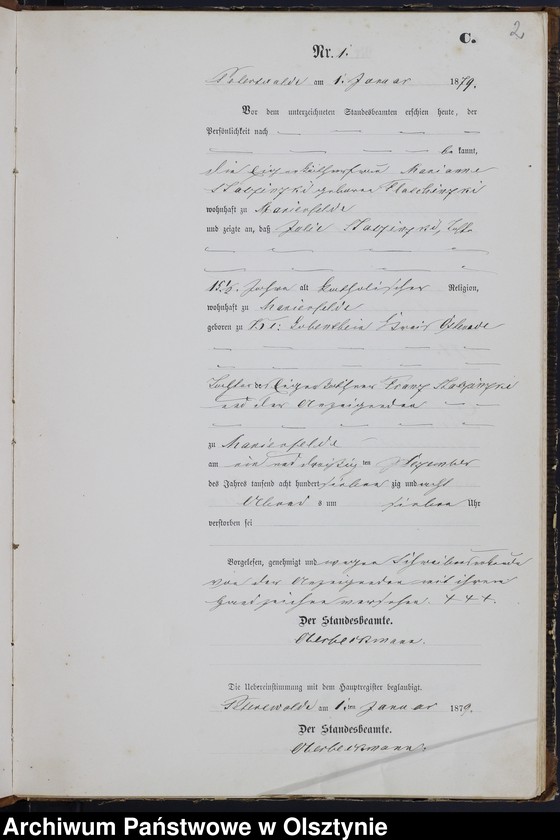 C.
2
Nr. 1.
am 1. Januar 1879.
Vor dem unterzeichneten Standesbeamten erschien heute, der
Persönlichkeit nach
be kannt,
die Eigenkäthnerfrau Marianne
geborene
wohnhaft zu Marienfelde
und zeigte an, daß Julie
15½ Jahre alt katholischer Religion,
wohnhaft zu Marienfelde
geboren zu Kl: Lobenstein Kreis Osterode
Tochter des Eigenkäthner Franz
und der Anzeigenden
zu Marienfelde
am ein und dreißig ten Dezember
des Jahres tausend acht hundert sieben zig und acht
Abend s um sieben Uhr
verstorben sei
Vorgelesen, genehmigt und wegen Schreibensunkunde
von der Anzeigenden mit ihrem
Handzeichen versehen. + + +.
Der Standesbeamte.
Oberbeckmann.
Die Uebereinstimmung mit dem Hauptregister beglaubigt.
am 1. ten Januar 1879.
Der Standesbeamte.
Oberbeckmann.
Archiwum Państwowe w Olsztynie